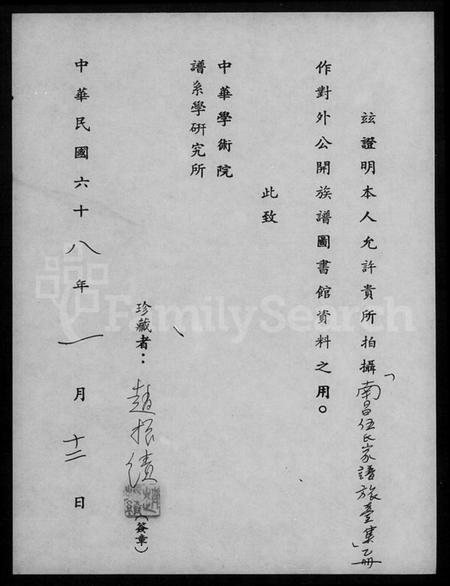 茲證明本人允許貴所拍攝「南昌伍氏家譜旅臺集」乙冊
作對外公開族譜圖書館資料之用。
此致
中華學術院
譜系學研究所
珍藏者：趙振績（簽章）
中華民國六十八年一月十二日
FamilySearch